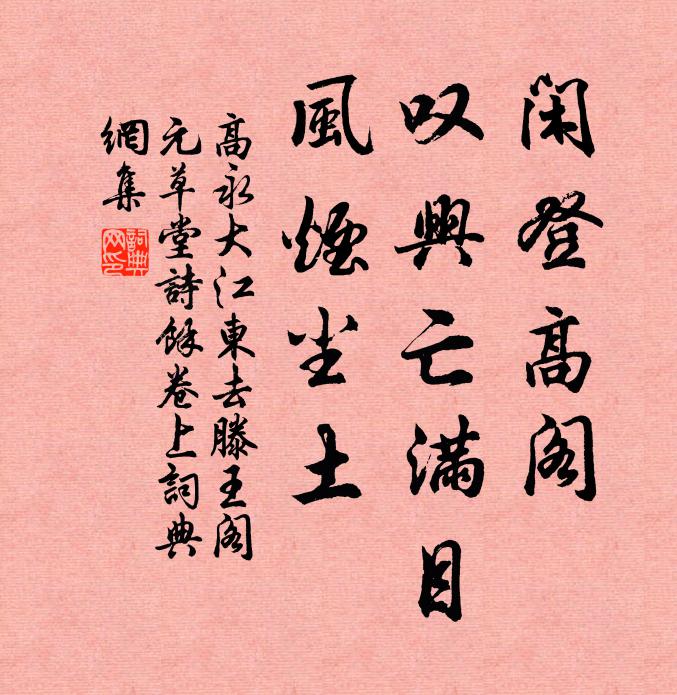 閑登高阁
叹興亡滿目
風煙尘土
高永大江東去滕王阁
元草堂詩餘卷上詞典
網集
詞典網印